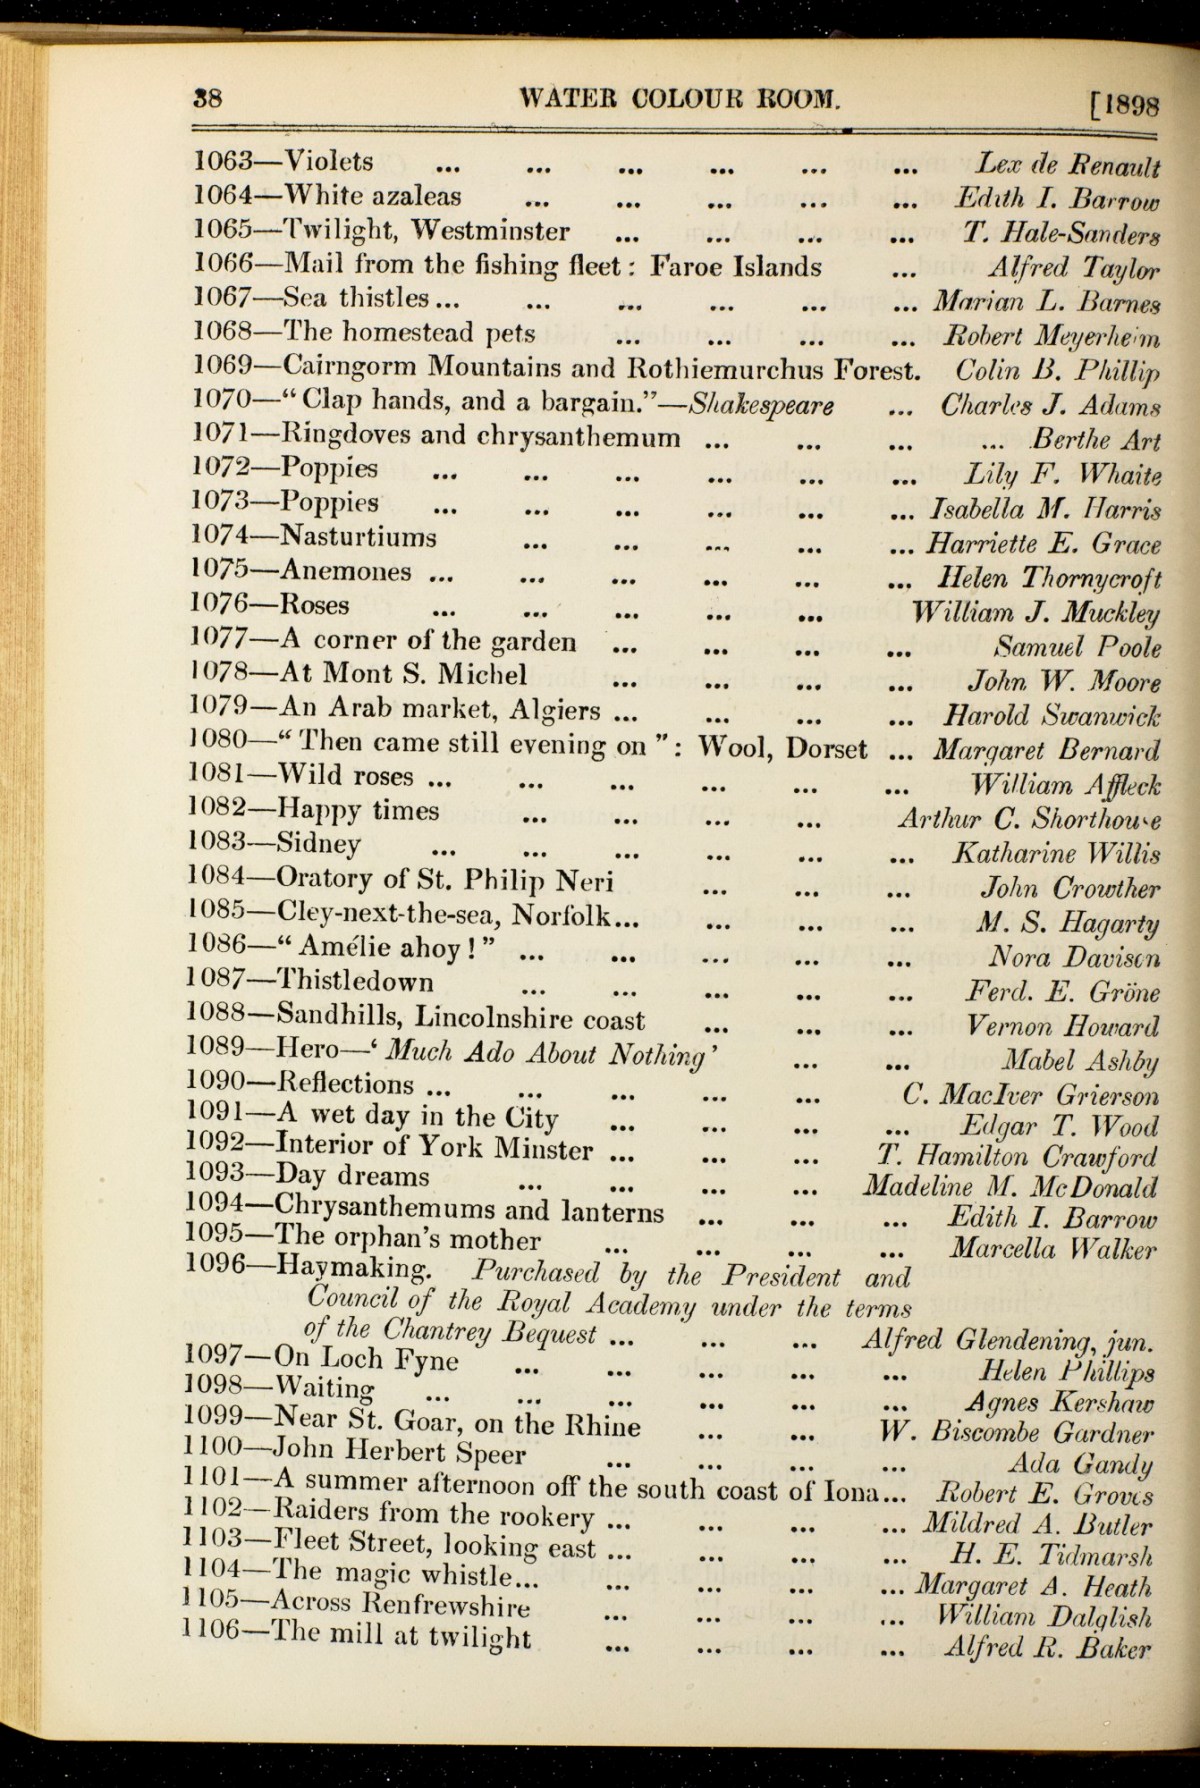 38 WATER COLOUR ROOM. [1898
1063—Violets ... ... ... ... ... ... Lex de Renault
1064—White azaleas ... ... ... ... ... Edith I. Barrow
1065—Twilight, Westminster ... ... ... ... T. Hale-Sanders
1066—Mail from the fishing fleet: Faroe Islands ... Alfred Taylor
1067—Sea thistles... ... ... ... ... ... Marian L. Barnes
1068—The homestead pets ... ... ... ... Robert Meyerheim
1069—Cairngorm Mountains and Rothiemurchus Forest. Colin B. Phillip
1070—“Clap hands, and a bargain.”—Shakespeare ... Charles J. Adams
1071—Ringdoves and chrysanthemum ... ... ... ... Berthe Art
1072—Poppies ... ... ... ... ... ... Lily F. Whaite
1073—Poppies ... ... ... ... ... ... Isabella M. Harris
1074—Nasturtiums ... ... ... ... ... Harriette E. Grace
1075—Anemones ... ... ... ... ... ... Helen Thornycroft
1076—Roses ... ... ... ... ... William J. Muckley
1077—A corner of the garden ... ... ... ... Samuel Poole
1078—At Mont S. Michel ... ... ... ... John W. Moore
1079—An Arab market, Algiers ... ... ... ... Harold Swanwick
1080—“Then came still evening on”: Wool, Dorset ... Margaret Bernard
1081—Wild roses ... ... ... ... ... ... William Affleck
1082—Happy times ... ... ... ... Arthur C. Shorthouse
1083—Sidney ... ... ... ... ... ... Katharine Willis
1084—Oratory of St. Philip Neri ... ... ... John Crowther
1085—Cley-next-the-sea, Norfolk... ... ... ... M. S. Hagarty
1086—“Amélie ahoy!” ... ... ... ... ... Nora Davison
1087—Thistledown ... ... ... ... ... Ferd. E. Gröne
1088—Sandhills, Lincolnshire coast ... ... ... Vernon Howard
1089—Hero—‘Much Ado About Nothing’ ... ... Mabel Ashby
1090—Reflections ... ... ... ... ... C. MacIver Grierson
1091—A wet day in the City ... ... ... ... Edgar T. Wood
1092—Interior of York Minster ... ... ... T. Hamilton Crawford
1093—Day dreams ... ... ... ... Madeline M. McDonald
1094—Chrysanthemums and lanterns ... ... ... Edith I. Barrow
1095—The orphan’s mother ... ... ... ... Marcella Walker
1096—Haymaking. Purchased by the President and
Council of the Royal Academy under the terms
of the Chantrey Bequest ... ... ... Alfred Glendening, jun.
1097—On Loch Fyne ... ... ... ... ... Helen Phillips
1098—Waiting ... ... ... ... ... ... Agnes Kershaw
1099—Near St. Goar, on the Rhine ... ... W. Biscombe Gardner
1100—John Herbert Speer ... ... ... ... Ada Gandy
1101—A summer afternoon off the south coast of Iona... Robert E. Groves
1102—Raiders from the rookery ... ... ... ... Mildred A. Butler
1103—Fleet Street, looking east ... ... ... ... H. E. Tidmarsh
1104—The magic whistle... ... ... ... ... Margaret A. Heath
1105—Across Renfrewshire ... ... ... ... William Dalglish
1106—The mill at twilight ... ... ... ... Alfred R. Baker